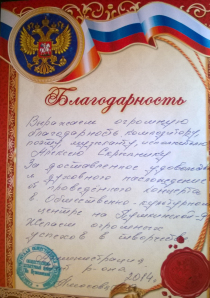 Благодарность
Выражаем огромную
благодарность композитору,
поэту, музыканту, исполнителю
За доставленное удовольствие
и духовное наслаждение
от проведённого концерта
в Общественно-культурном
центре на Пушкинской
Желаем огромных
успехов в творчестве
Администрация
р-она
2014г.